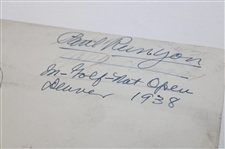 Paul Runyon
In-Golf-Nat. Open
Denver 1938